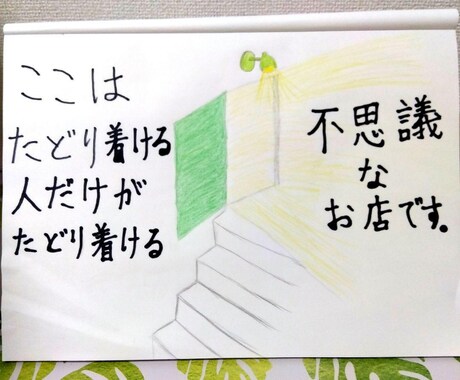 ここは
たどり着ける
人だけが
たどり着ける
不思議
な
お店です。